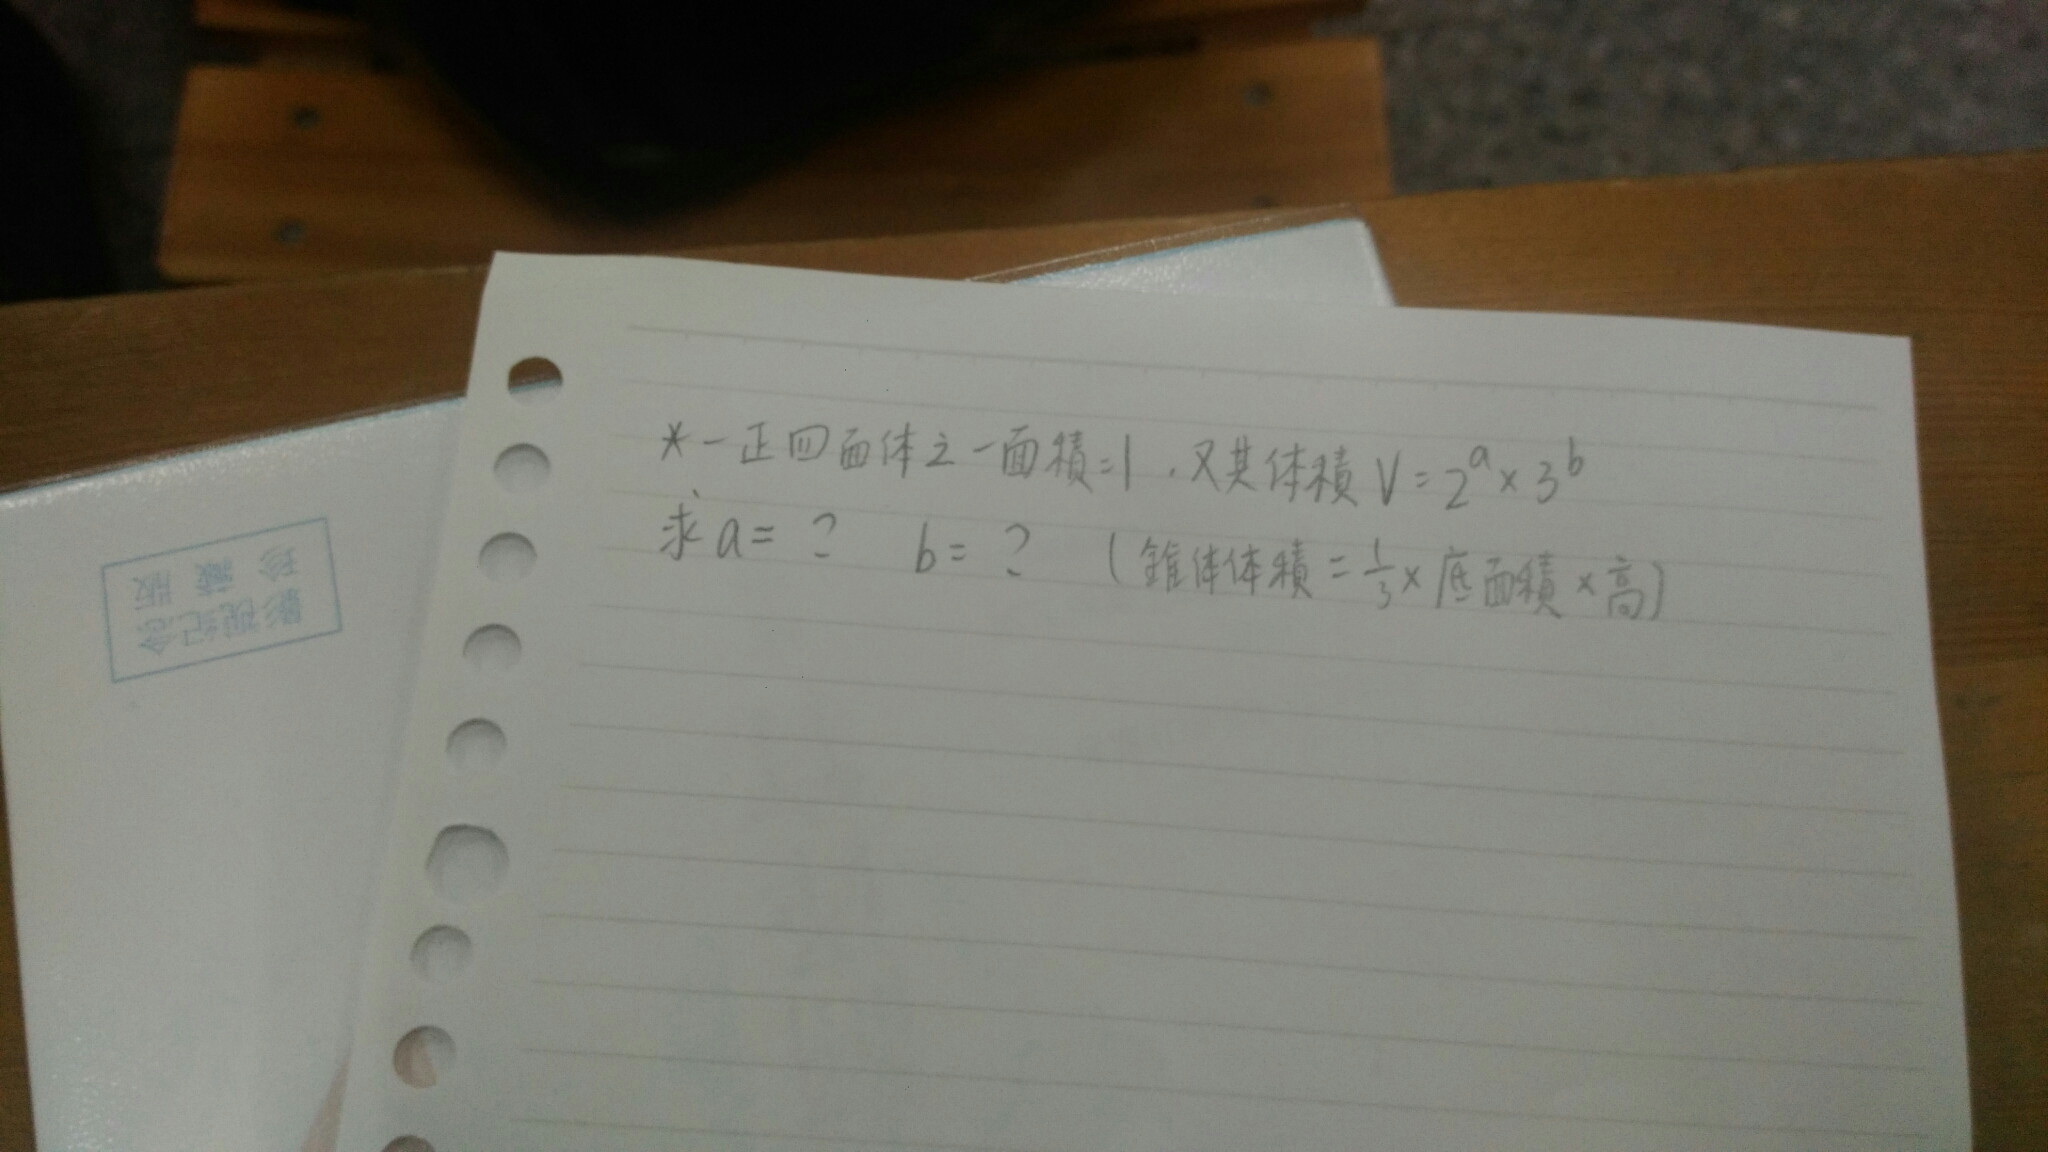 *一正四面体之一面積=1,又其体積 V=2^a×3^b
求 a= ? b= ? (錐体体積=1/3×底面積×高)
影視紀念
珍藏版